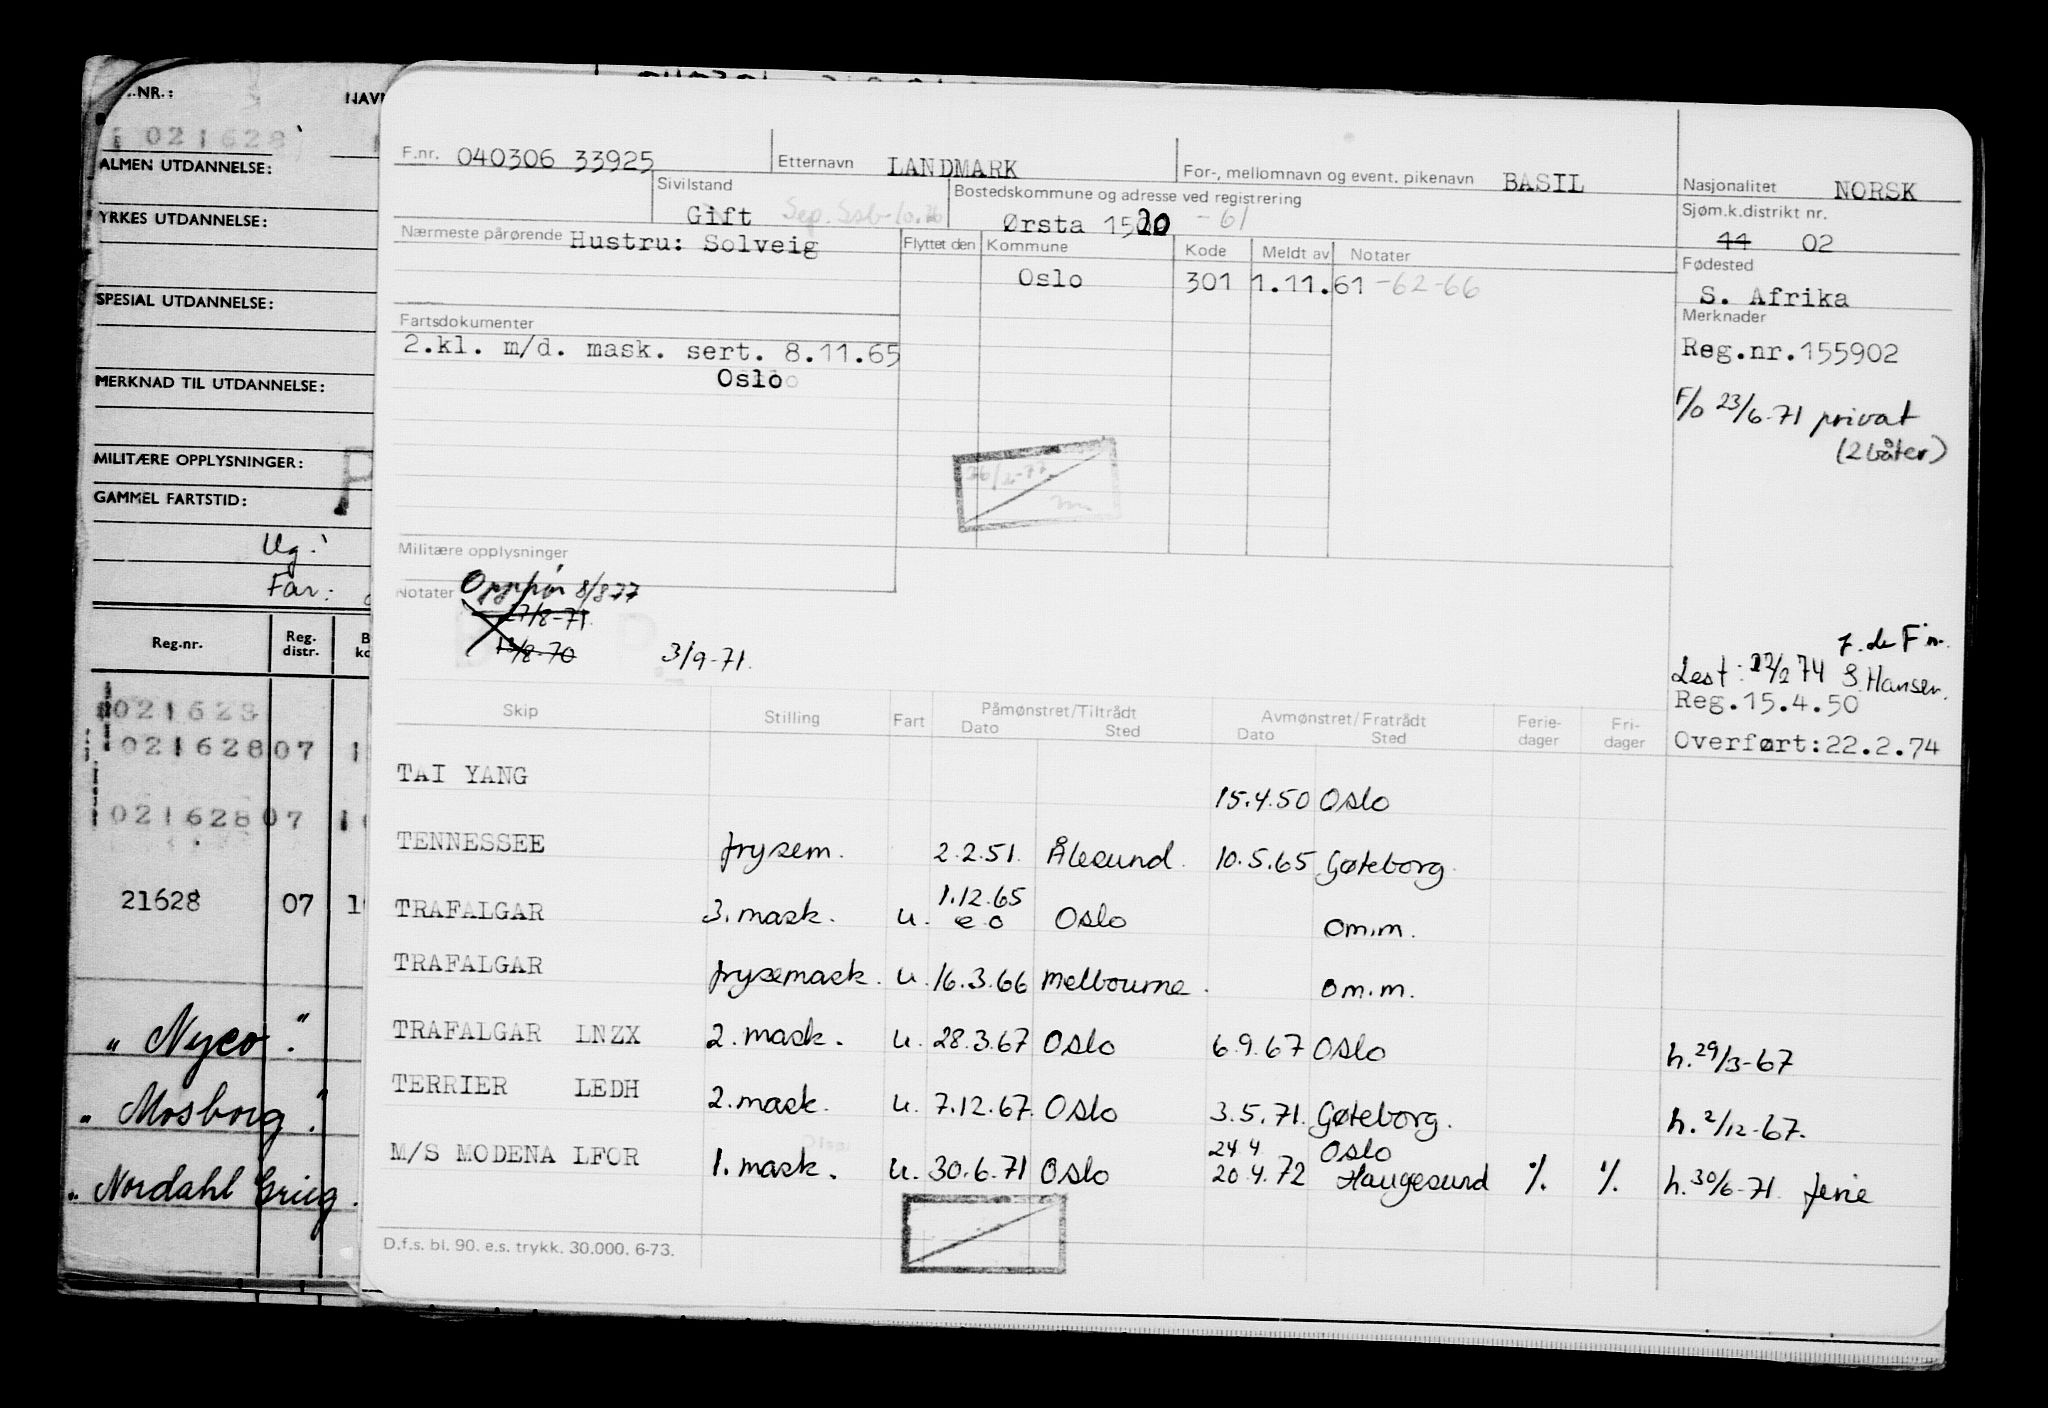 NR.:
NAV
021628
ALMEN UTDANNELSE:
YRKES UTDANNELSE:
SPESIAL UTDANNELSE:
MERKNAD TIL UTDANNELSE:
MILITÆRE OPPLYSNINGER:
GAMMEL FARTSTID:
Ug.
Far:
Reg.nr. Reg. distr.
021623
021628 07
021628 07
21628 07
" Nyco "
" Mosborg "
" Nordahl Grieg.
F.nr. 040306 33925 Etternavn LANDMARK For-, mellomnavn og event. pikenavn BASIL Nasjonalitet NORSK
Sivilstand Gift Bostedskommune og adresse ved registrering Ørsta 1520 -61 Sjøm.k.distrikt nr. 11 02
Nærmeste pårørende Hustru: Solveig Flyttet den Kommune Kode Meldt av Notater Fødested
Oslo 301 1.11.61 -62-66 S. Afrika
Fartsdokumenter Merknader
2.kl. m/d. mask. sert. 8.11.65 Reg.nr.155902
Oslo
F/o 23/6-71 privat
(2 båter)
Militære opplysninger
Notater Opphør 8/8 77
17/8-71
13/8-70 3/9-71.
Lest: 22/2 74 S. Hansen.
Reg.15.4.50
Overført:22.2.74
Skip Stilling Fart Påmønstret/Tiltrådt Avmønstret/Fratrådt Ferie- Fri-
Dato Sted Dato Sted dager dager
TAI YANG 15.4.50 Oslo
TENNESSEE frysem. 2.2.51. Ålesund. 10.5.65 Gøteborg.
TRAFALGAR 3. mask. u. 1.12.65 e o Oslo om.m.
TRAFALGAR frysemask. u. 16.3.66 Melbourne. om.m.
TRAFALGAR LNZX 2. mask. u. 28.3.67 Oslo 6.9.67 Oslo h. 29/3-67
TERRIER LEDH 2. mask. u. 7.12.67. Oslo 3.5.71. Gøteborg. h. 2/12-67.
24.4 Oslo
M/S MODENA LFOR 1. mask. u. 30.6.71 Oslo 20.4.72 Haugesund % % h. 30/6-71 ferie
D.f.s. bl. 90. e.s. trykk. 30.000. 6-73.